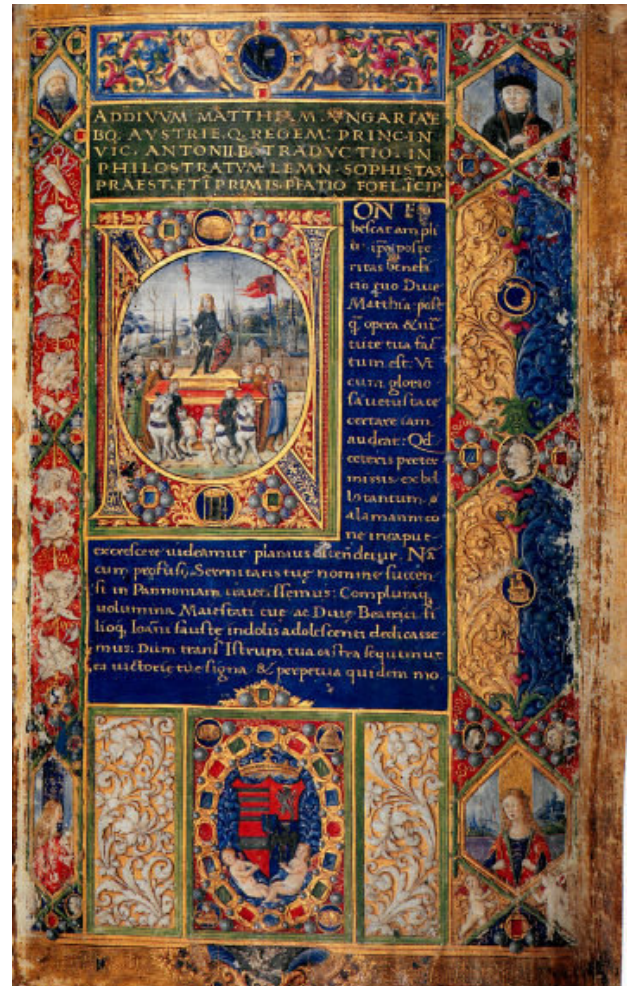 AD DIVVM MATTHIAM VNGARIAE
BQ. AVSTRIE.Q. REGEM: PRINC. IN
VIC. ANTONII B. TRADVCTIO. IN
PHILOSTRATVM LEMN. SOPHISTAR
PRAEST. ET Ī PRIMIS. PFATIO FOELICIP
ON
bescat ampli
poste
ritas benefi
cio quo Diue
Matthia post
q̄ opera & uir
tute tua fac
tum est: Vt
cum glorio
sa uetustate
certare iam
audeat: Qd
ceteris preter
missis, ex bel
lo tantum
alamannico
ne in caput
excrescere uideamur planius ostendetur. Nā
cum profusi, Serenitatis tuę nomine succen
si in Pannoniam Compluraq,
uolumina Maiestati tuę ac Diuę Beatrici fi
lioq, Ioāni fauste indolis adolescenti dedicasse
mus: Dum trans Istrum tua castra sequimur
ea uictorię tuę signa & perpetua quidem mo